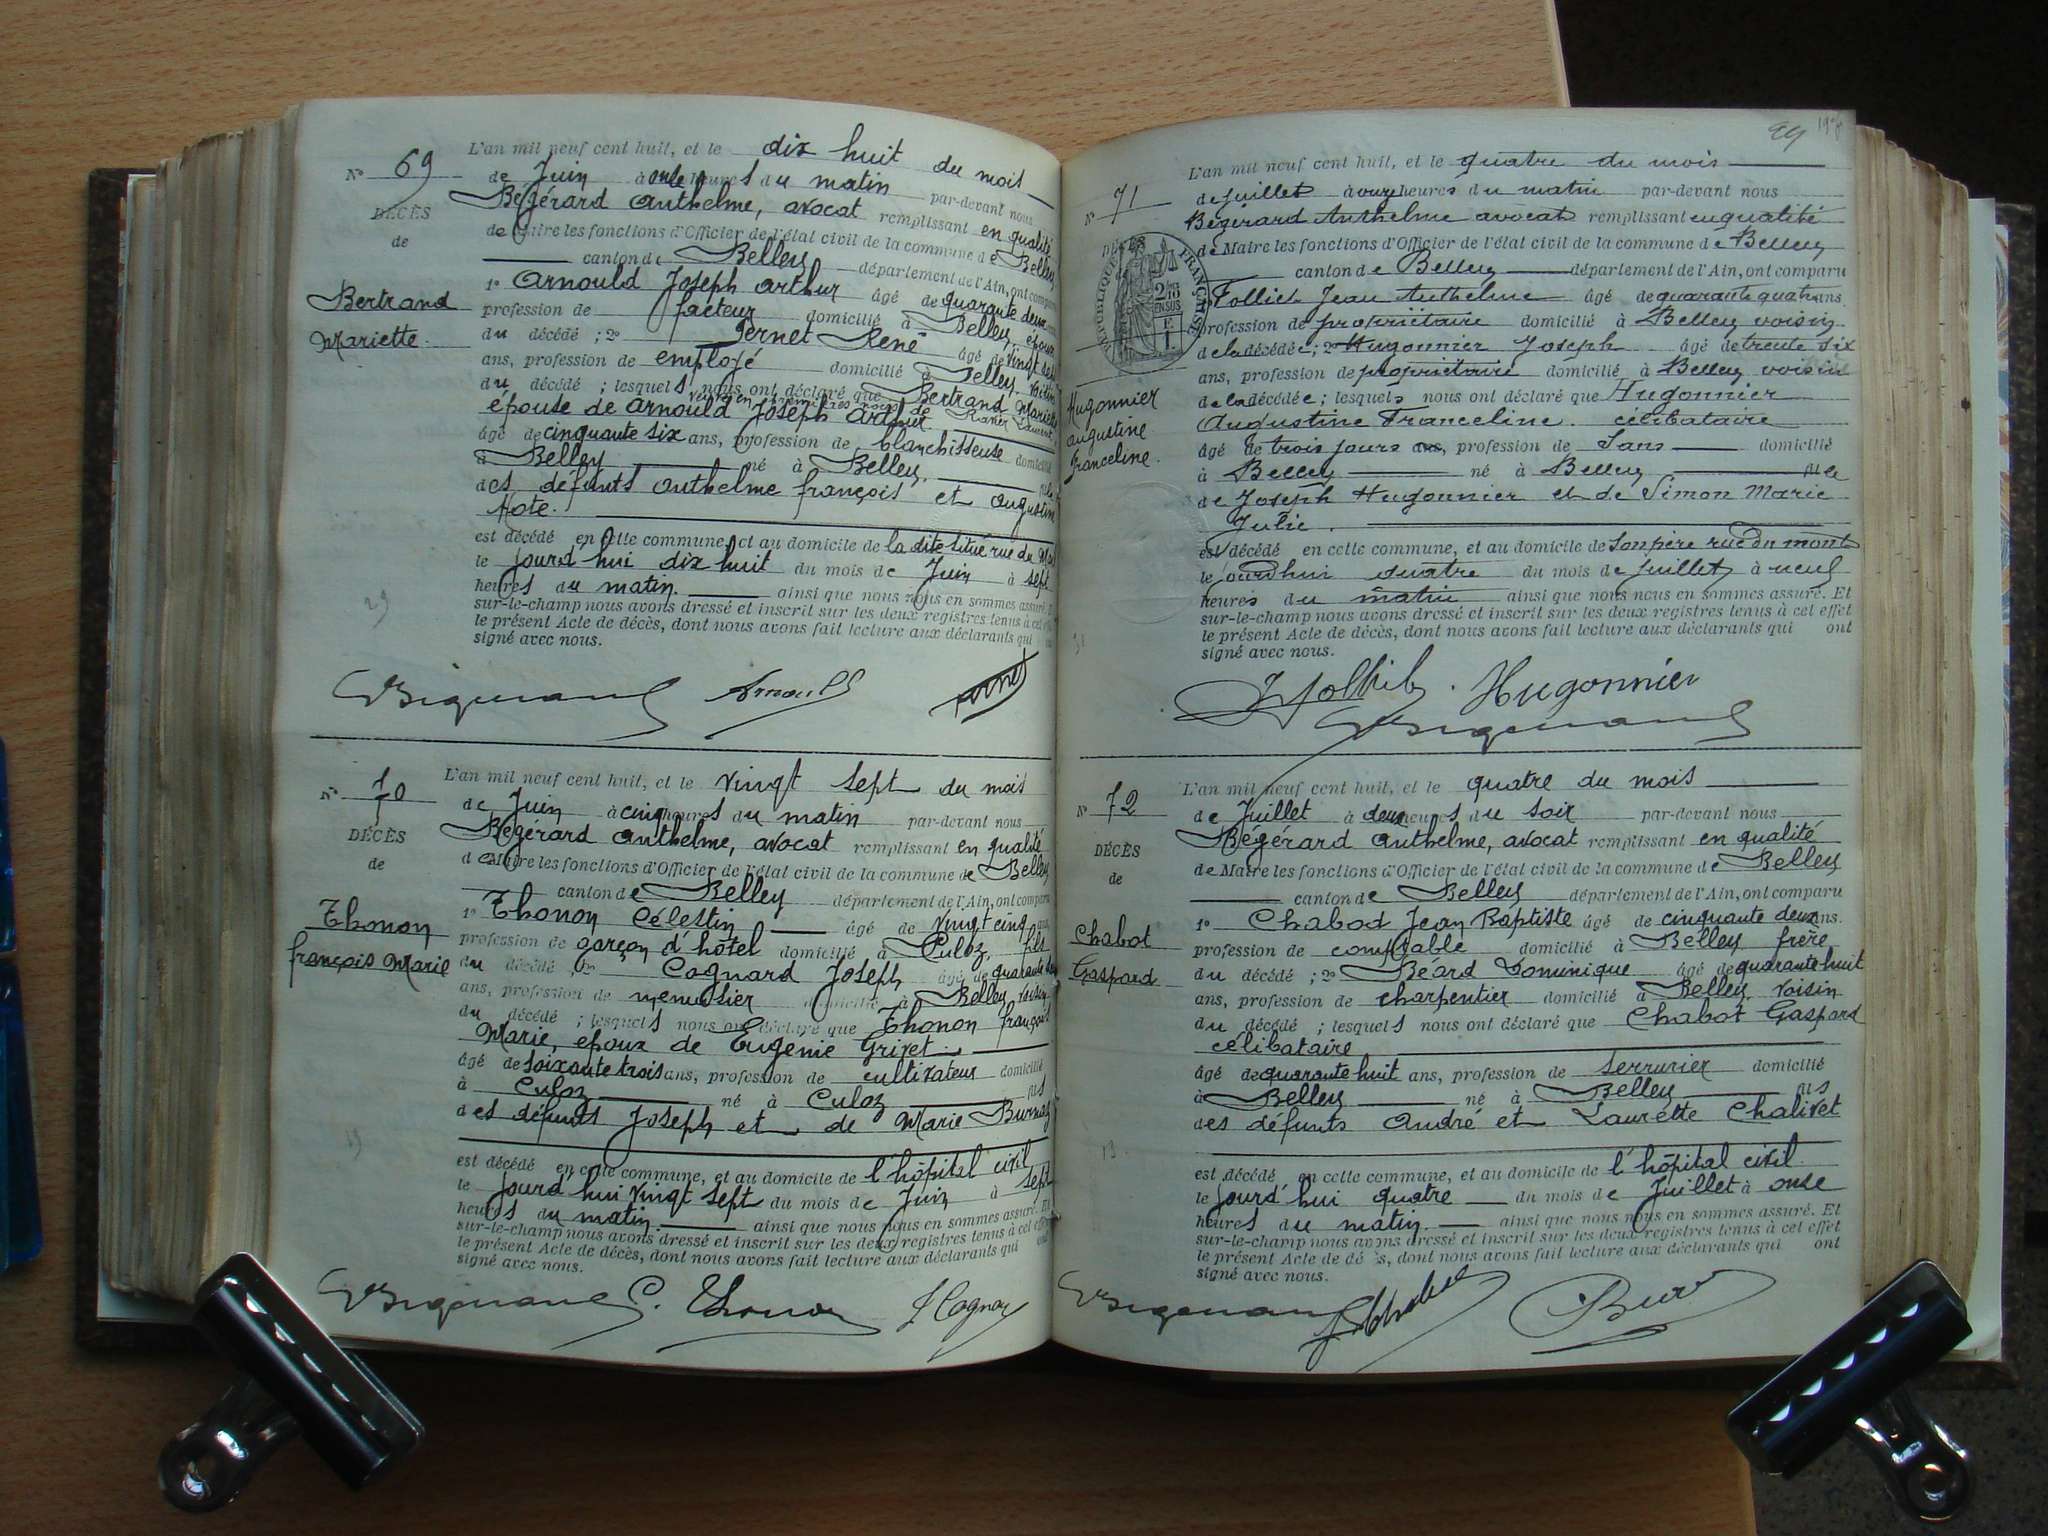 L'an mil neuf cent huit, et le dix huit du mois
N° 69
de Juin à onze heures du matin par-devant nous
Bégérard Anthelme, avocat remplissant en qualité
DÉCÈS
de Maire les fonctions d'Officier de l'état civil de la commune de Belley
de
canton de Belley département de l'Ain, ont comparu
1° Arnould Joseph Arthur âgé de quarante deux
Bertrand
profession de facteur domicilié à Belley, époux
Mariette.
du décédé ; 2° Pernet René âgé de vingt
ans, profession de employé domicilié à Belley, voisin
du décédé ; lesquels nous ont déclaré que Bertrand Mariette
épouse de Arnould Joseph Arthur
âgé de cinquante six ans, profession de blanchisseuse domicilié
à Belley né à Belley.
des défunts Anthelme françois et Augustine
Hote.
est décédé en cette commune, et au domicile de la dite situé rue du
le jourd'hui dix huit du mois de Juin à sept
heures du matin. ainsi que nous nous en sommes assuré. Et
sur-le-champ nous avons dressé et inscrit sur les deux registres tenus à cet effet
29
le présent Acte de décès, dont nous avons fait lecture aux déclarants qui ont
signé avec nous.
Arnould
L'an mil neuf cent huit, et le vingt sept du mois
N° 70
de Juin à cinq heures du matin par-devant nous
DÉCÈS
Bégérard Anthelme, avocat remplissant en qualité
de
de Maire les fonctions d'Officier de l'état civil de la commune de Belley
canton de Belley département de l'Ain, ont comparu
Thonon
1° Thonon Célestin âgé de vingt cinq ans
françois Marie
profession de garçon d'hôtel domicilié à Culoz, fils
du décédé ; 2° Cognard Joseph âgé de quarante
ans, profession de menuisier domicilié à Belley voisin
du décédé ; lesquels nous ont déclaré que Thonon françois
Marie, époux de Eugénie Grivet.
âgé de soixante trois ans, profession de cultivateur domicilié
à Culoz né à Culoz fils
des défunts Joseph et de Marie
est décédé en cette commune, et au domicile de l'hôpital civil
le jourd'hui vingt sept du mois de Juin à sept
heures du matin. ainsi que nous nous en sommes assuré. Et
sur-le-champ nous avons dressé et inscrit sur les deux registres tenus à cet effet
le présent Acte de décès, dont nous avons fait lecture aux déclarants qui ont
signé avec nous.
C. Thonon J Cognar
99 1908
L'an mil neuf cent huit, et le quatre du mois
N° 71
de Juillet à onze heures du matin par-devant nous
Bégérard Anthelme avocat remplissant en qualité
DÉCÈS
de Maire les fonctions d'Officier de l'état civil de la commune de Belley
canton de Belley département de l'Ain, ont comparu
RÉPUBLIQUE FRANÇAISE
Folliet Jean Anthelme âgé de quarante quatre ans.
profession de propriétaire domicilié à Belley voisin
de la décédée ; 2° Hugonnier Joseph âgé de trente six
ans, profession de propriétaire domicilié à Belley voisin
Hugonnier
Augustine
Franceline.
de la décédée ; lesquels nous ont déclaré que Hugonnier
Augustine Franceline. célibataire
âgé de trois jours ans, profession de Sans domicilié
à Belley né à Belley fille
de Joseph Hugonnier et de Simon Marie
Julie.
est décédé en cette commune, et au domicile de son père rue du mont
le jourd'hui quatre du mois de Juillet à neuf
heures du matin ainsi que nous nous en sommes assuré. Et
sur-le-champ nous avons dressé et inscrit sur les deux registres tenus à cet effet
le présent Acte de décès, dont nous avons fait lecture aux déclarants qui ont
signé avec nous.
Hugonnier
L'an mil neuf cent huit, et le quatre du mois
N° 72
de Juillet à deux heures du soir par-devant nous
Bégérard Anthelme, avocat remplissant en qualité
DÉCÈS
de
de Maire les fonctions d'Officier de l'état civil de la commune de Belley
canton de Belley département de l'Ain, ont comparu
1° Chabod Jean Baptiste âgé de cinquante deux ans.
Chabot
Gaspard
profession de comptable domicilié à Belley frère
du décédé ; 2° Béard Dominique âgé de quarante huit
ans, profession de charpentier domicilié à Belley voisin
du décédé ; lesquels nous ont déclaré que Chabot Gaspard
célibataire
âgé de quarante huit ans, profession de serrurier domicilié
à Belley né à Belley fils
des défunts André et Laurette Chalivet
13
est décédé en cette commune, et au domicile de l'hôpital civil
le jourd'hui quatre du mois de Juillet à onse
heures du matin. ainsi que nous nous en sommes assuré. Et
sur-le-champ nous avons dressé et inscrit sur les deux registres tenus à cet effet
le présent Acte de décès, dont nous avons fait lecture aux déclarants qui ont
signé avec nous.